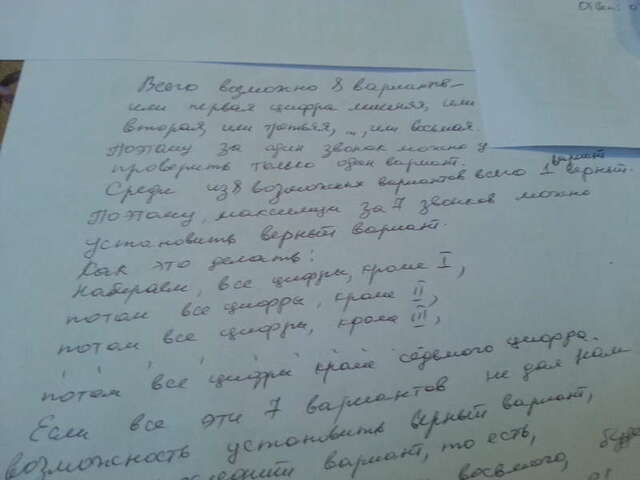 Ответ
Всего возможно 8 вариантов –
или первая цифра лишняя, или
вторая, или третья, ..., или восьмая.
Поэтому за один звонок можно
проверить только один вариант.
Среди из 8 возможных вариантов всего 1 вариант верный.
Поэтому, максимум за 7 звонков можно
установить верный вариант.
Как это делать:
Набираем, все цифры, кроме I,
потом все цифры, кроме II,
потом все цифры, кроме III,
потом все цифры кроме седьмого цифра.
Если все эти 7 вариантов не дал нам
возможность установить верный вариант,
вариант, то есть,
восьмого, будет